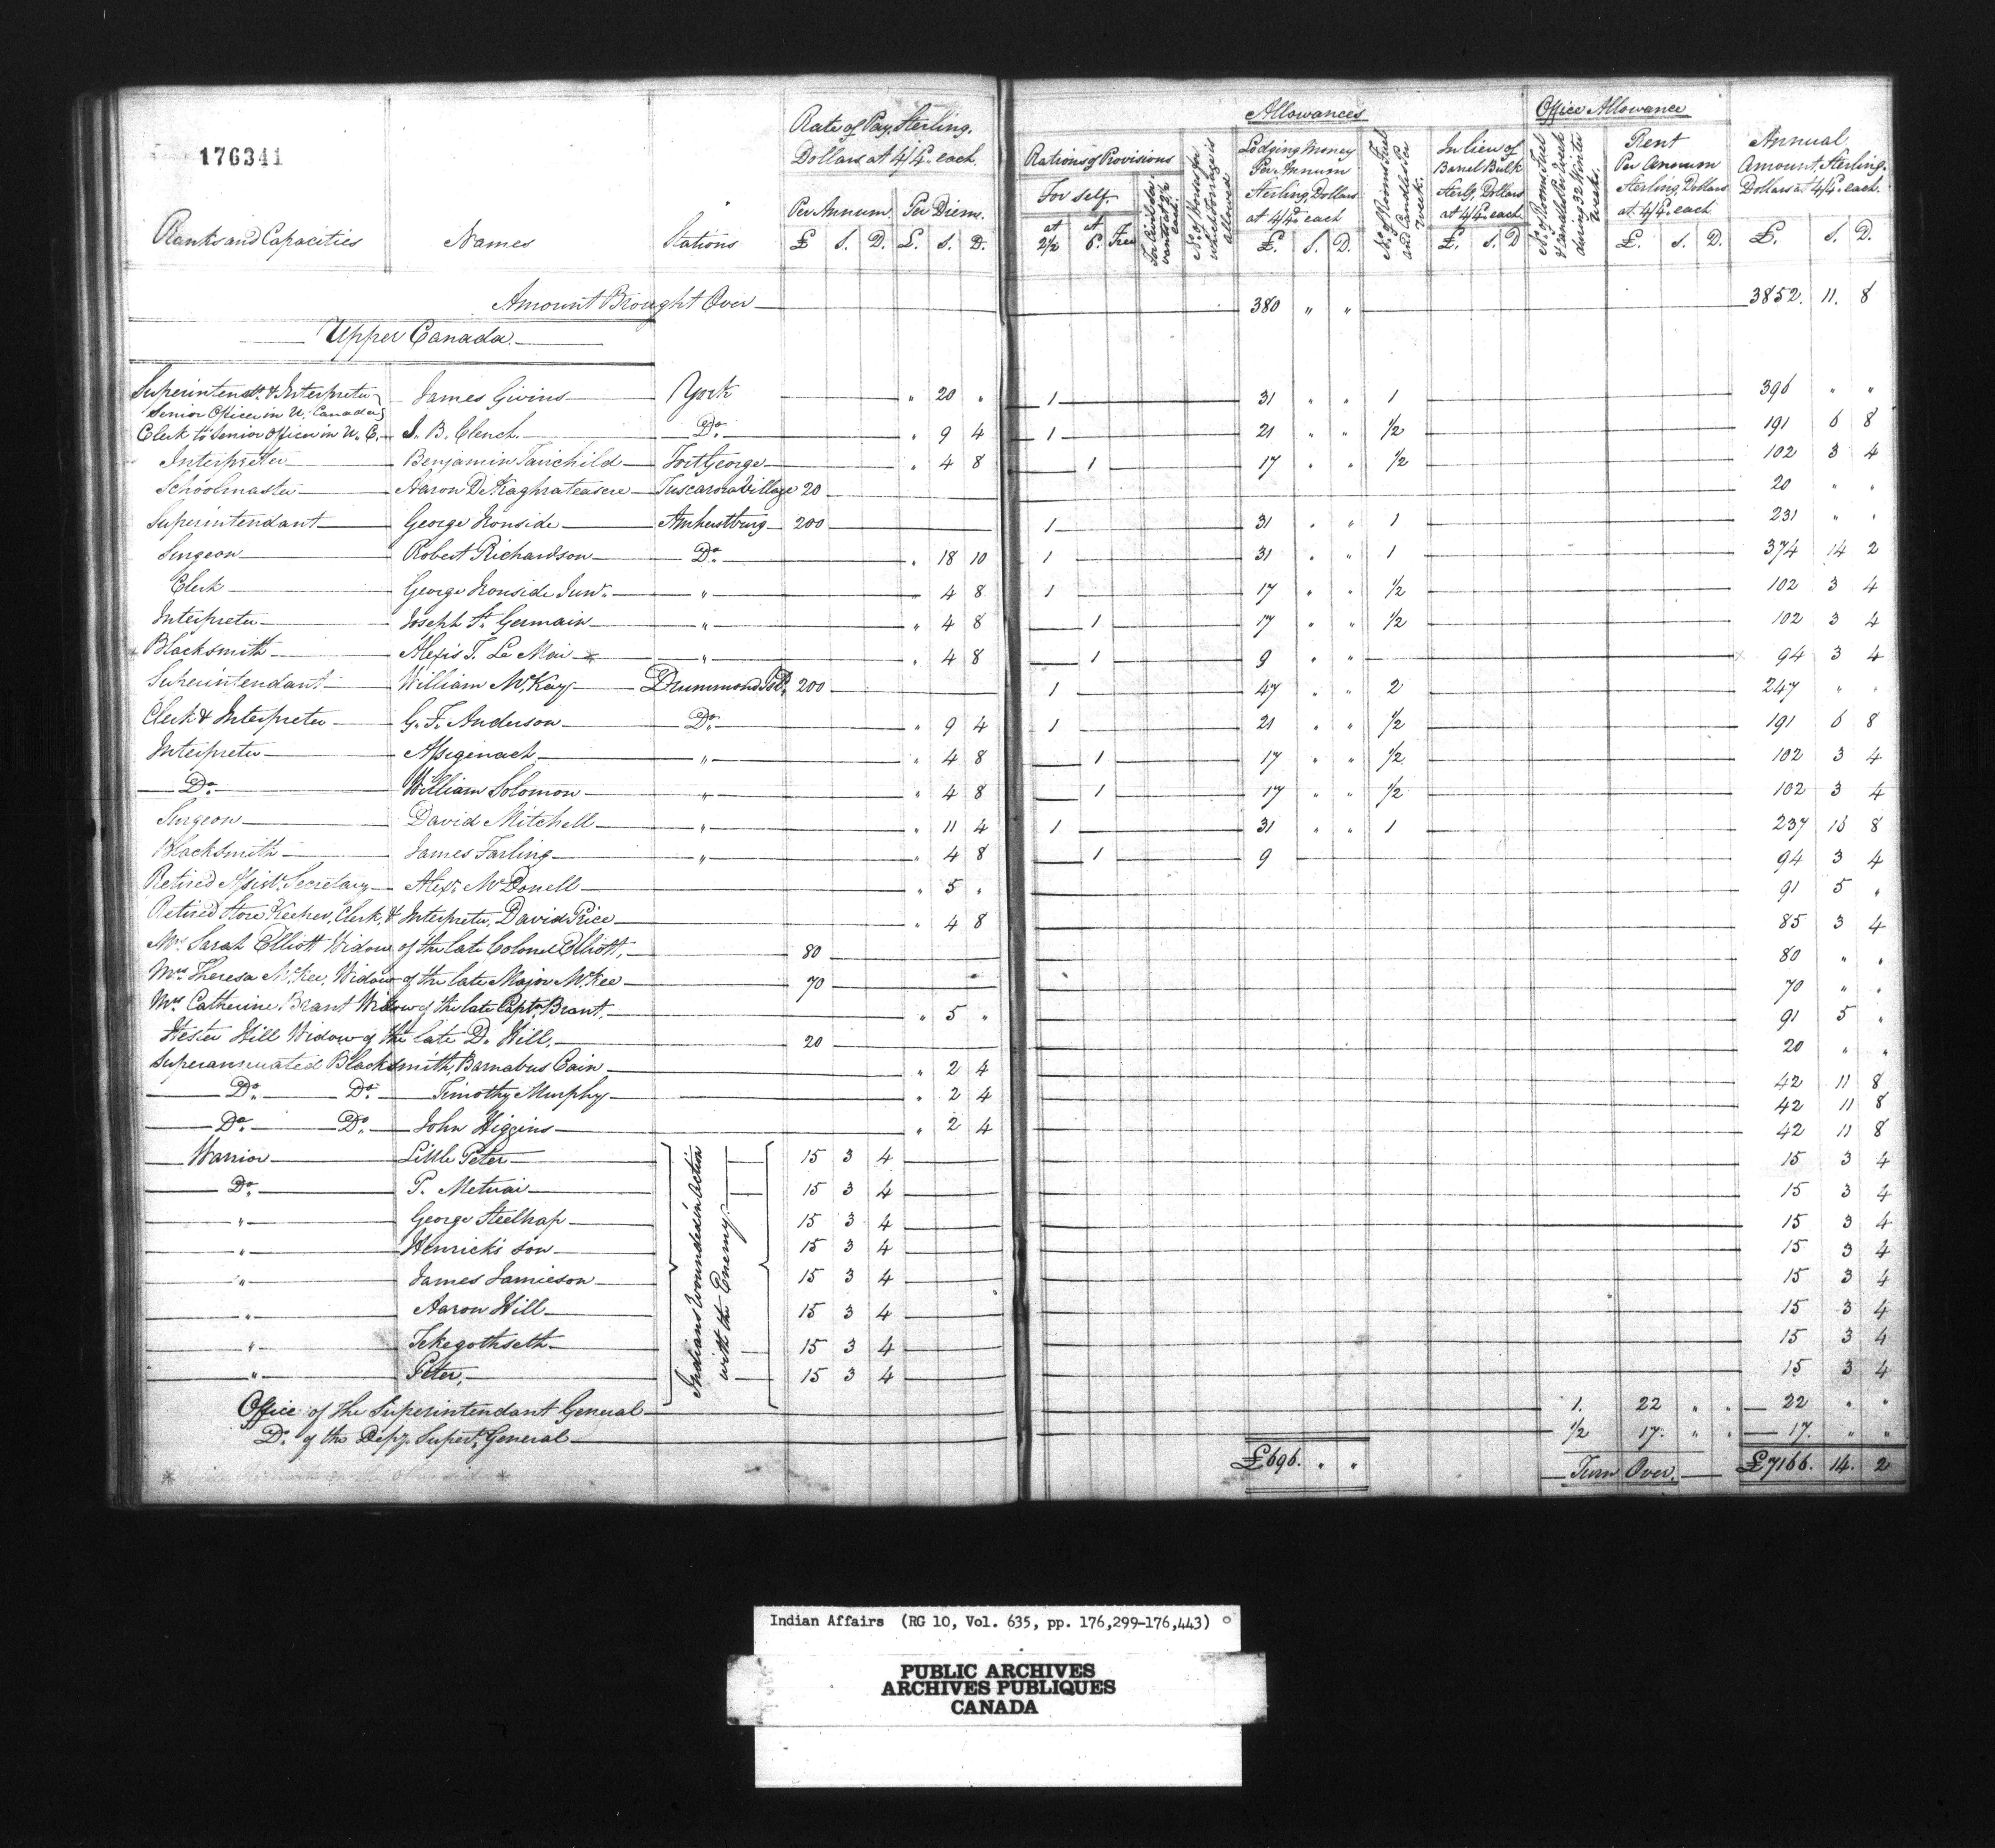 176341
Ranks and Capacities | Names | Stations | Rate of Pay, Sterling. Dollars at 4/4d. each. | Per Annum £ S. D. | Per Diem. £. S. D.
Allowances | Rations of Provisions | For self. at 2½ | at 6d. | Free | No. of Horses for which Forage is allowed | Lodging Money Per Annum Sterling, Dollars at 4/4d. each £. S. D. | No. of Rooms Fuel and Candles Per Week. | In lieu of Barrel Bulk Sterlg. Dollars at 4/4d. each £. S. D
Office Allowance | No. of Rooms, Fuel & Candles Per Week during 32 Winter Weeks. | Rent Per Annum Sterling, Dollars at 4/4d. each £. S. D. | Annual Amount, Sterling. Dollars at 4/4d. each. £. S. D.
Amount Brought Over 380 " " 3852. 11. 8
Upper Canada.
Superintendt. & Interpreter Senior Officer in U. Canada James Givins York " 20 " 1 31 " " 1 396 " "
Clerk to Senior Officer in U. C. J. B. Clench Do. " 9 4 1 21 " " ½ 191 6 8
Interpreter Benjamin Fairchild Fort George " 4 8 1 17 " " ½ 102 3 4
Schoolmaster Aaron Tuscarora Village 20 20 " "
Superintendant George Ironside Amherstburg 200 1 31 " " 1 231 " "
Surgeon Robert Richardson Do. " 18 10 1 31 " " 1 374 14 2
Clerk George Ironside Junr. " " 4 8 1 17 " " ½ 102 3 4
Interpreter Joseph St. Germain " " 4 8 1 17 " " ½ 102 3 4
* Blacksmith Alexis T. Le Mai * " " 4 8 1 9 " " 94 3 4
Superintendant William McKay Drummond Isld. 200 1 47 " " 2 247 " "
Clerk & Interpreter G. F. Anderson Do. " 9 4 1 21 " " ½ 191 6 8
Interpreter Assigenach " " 4 8 1 17 " " ½ 102 3 4
Do. William Solomon " " 4 8 1 17 " " ½ 102 3 4
Surgeon David Mitchell " " 11 4 1 31 " " 1 237 16 8
Blacksmith James Farling " " 4 8 1 9 94 3 4
Retired Assist. Secretary Alexr. McDonell " 5 " 91 5 "
Retired Store Keeper, Clerk, & Interpreter, David Price " 4 8 85 3 4
Mrs. Sarah Elliott Widow of the late Colonel Elliott, 80 80 " "
Mrs. Theresa McKee, Widow of the late Major McKee 70 70 " "
Mrs. Catherine Brant Widow of the late Captn. Brant. " 5 " 91 5 "
Hester Hill Widow of the late D. Hill. 20 20 " "
Superannuated Blacksmith, Barnabus Cain " 2 4 42 11 8
Do. Do. Timothy Murphy " 2 4 42 11 8
Do. Do. John Higgins " 2 4 42 11 8
Indians Wounded in Action with the Enemy.
Warrior Little Peter 15 3 4 15 3 4
Do. P. Metwai 15 3 4 15 3 4
" George Steelhap 15 3 4 15 3 4
" Henrick's son 15 3 4 15 3 4
" James Jamieson 15 3 4 15 3 4
" Aaron Hill 15 3 4 15 3 4
" Tekegothseth 15 3 4 15 3 4
" Peter, 15 3 4 15 3 4
Office of the Superintendant General 1. 22 " " 22 " "
Do. of the Depy. Supert. General ½ 17. " " 17. " "
* vide Remark on the other side *
£696. " " Turn Over. £7166. 14. 2
Indian Affairs (RG 10, Vol. 635, pp. 176,299-176,443)
PUBLIC ARCHIVES
ARCHIVES PUBLIQUES
CANADA